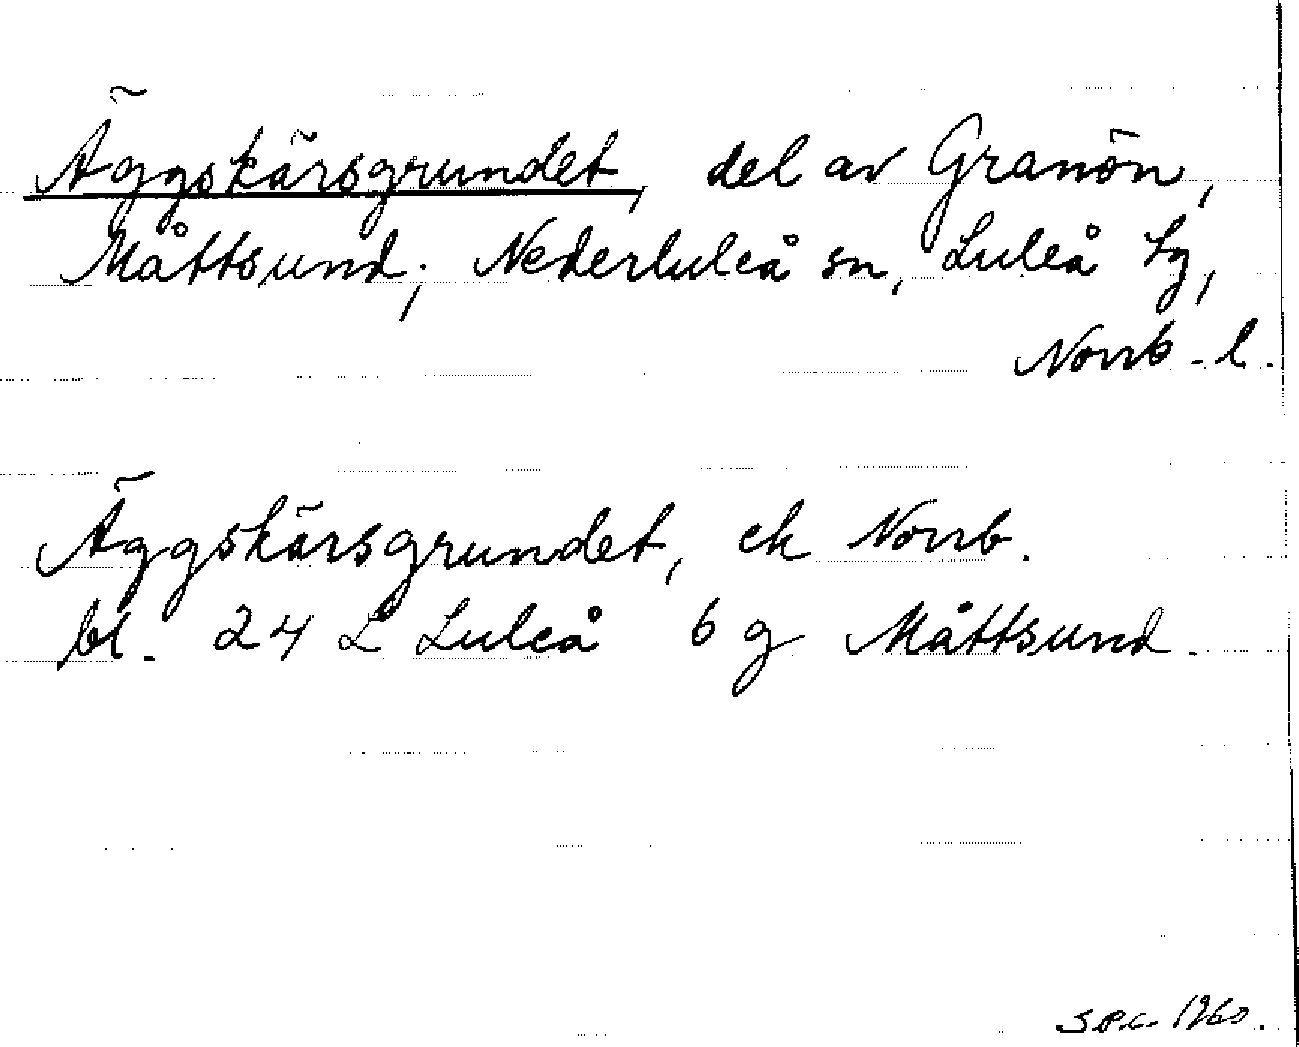 Äggskärsgrundet, del av Granön,
Måttsund; Nederluleå sn, Luleå tg,
Norrb. l.
Äggskärsgrundet, ek Norrb.
bl. 24 L Luleå 6 g Måttsund.
1960.